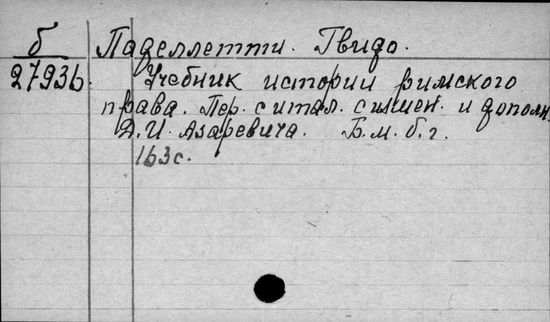 б Паделлетти. Гвидо.
27936. Учебник истории римского
права. Пер. с итал. с измен. и дополн.
Д. И. Азаревича. Б. м. б. г.
163 с.